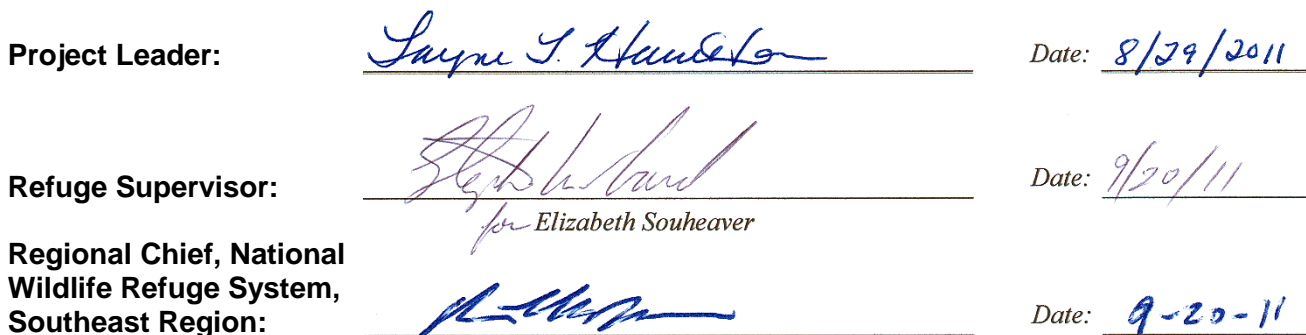 Project Leader: Layne L. Hamilton Date: 8/29/2011
Refuge Supervisor: Date: 9/20/11
for Elizabeth Souheaver
Regional Chief, National
Wildlife Refuge System,
Southeast Region: Date: 9-20-11